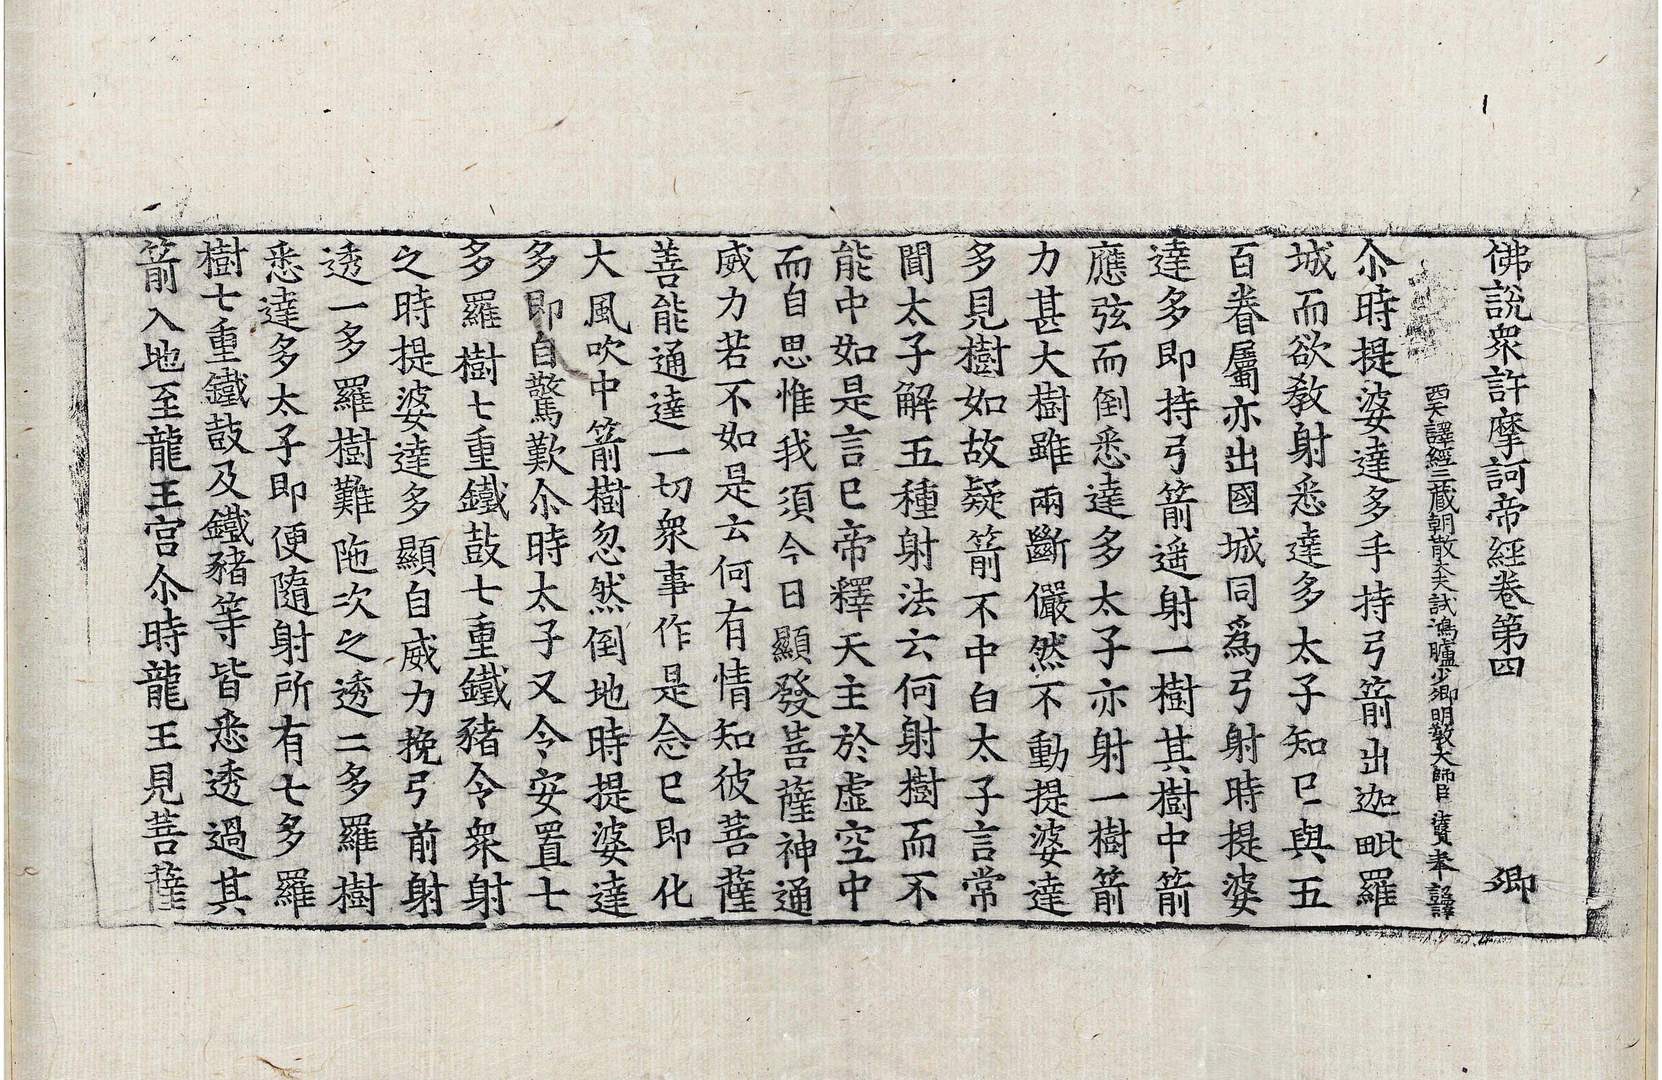 佛說衆許摩訶帝經卷第四 卿
西天譯經三藏朝散大夫試鴻臚少卿明教大師臣法賢奉 詔譯
尒時提婆達多手持弓箭出迦毗羅
城而欲教射悉達多太子知巳與五
百眷屬亦出國城同爲弓射時提婆
達多即持弓箭遥射一樹其樹中箭
應弦而倒悉達多太子亦射一樹箭
力甚大樹雖兩斷儼然不動提婆達
多見樹如故疑箭不中白太子言常
聞太子解五種射法云何射樹而不
能中如是言巳帝釋天主於虛空中
而自思惟我須今日顯發菩薩神通
威力若不如是云何有情知彼菩薩
善能通達一切衆事作是念巳即化
大風吹中箭樹忽然倒地時提婆達
多即自驚歎尒時太子又令安置七
多羅樹七重鐵鼓七重鐵豬令衆射
之時提婆達多顯自威力挽弓前射
透一多羅樹難陁次之透二多羅樹
悉達多太子即便隨射所有七多羅
樹七重鐵鼓及鐵豬等皆悉透過其
箭入地至龍王宮尒時龍王見菩薩